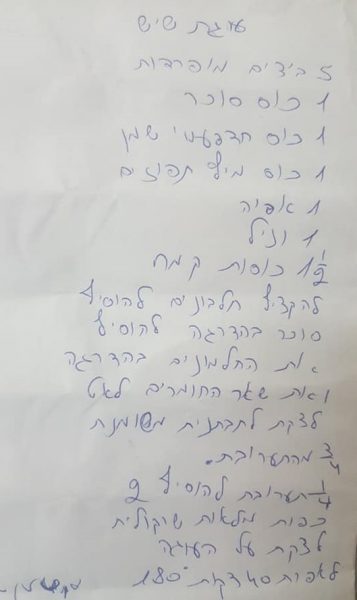 עוגת שיש
5 ביצים מופרדות
1 כוס סוכר
1 כוס שמן
1 כוס מיץ תפוזים
1 אפיה
1 וניל
1 1/2 כוסות קמח
להקציף חלבונים להוסיף
סוכר בהדרגה להוסיף
את החלמונים בהדרגה
ואת שאר החומרים לאט
לצקת לתבנית משומנת
3/4 מהתערובת.
1/4 תערובת להוסיף 2
כפות מלאות שוקולית
לצקת על העוגה
לאפות 40 דקות 180°